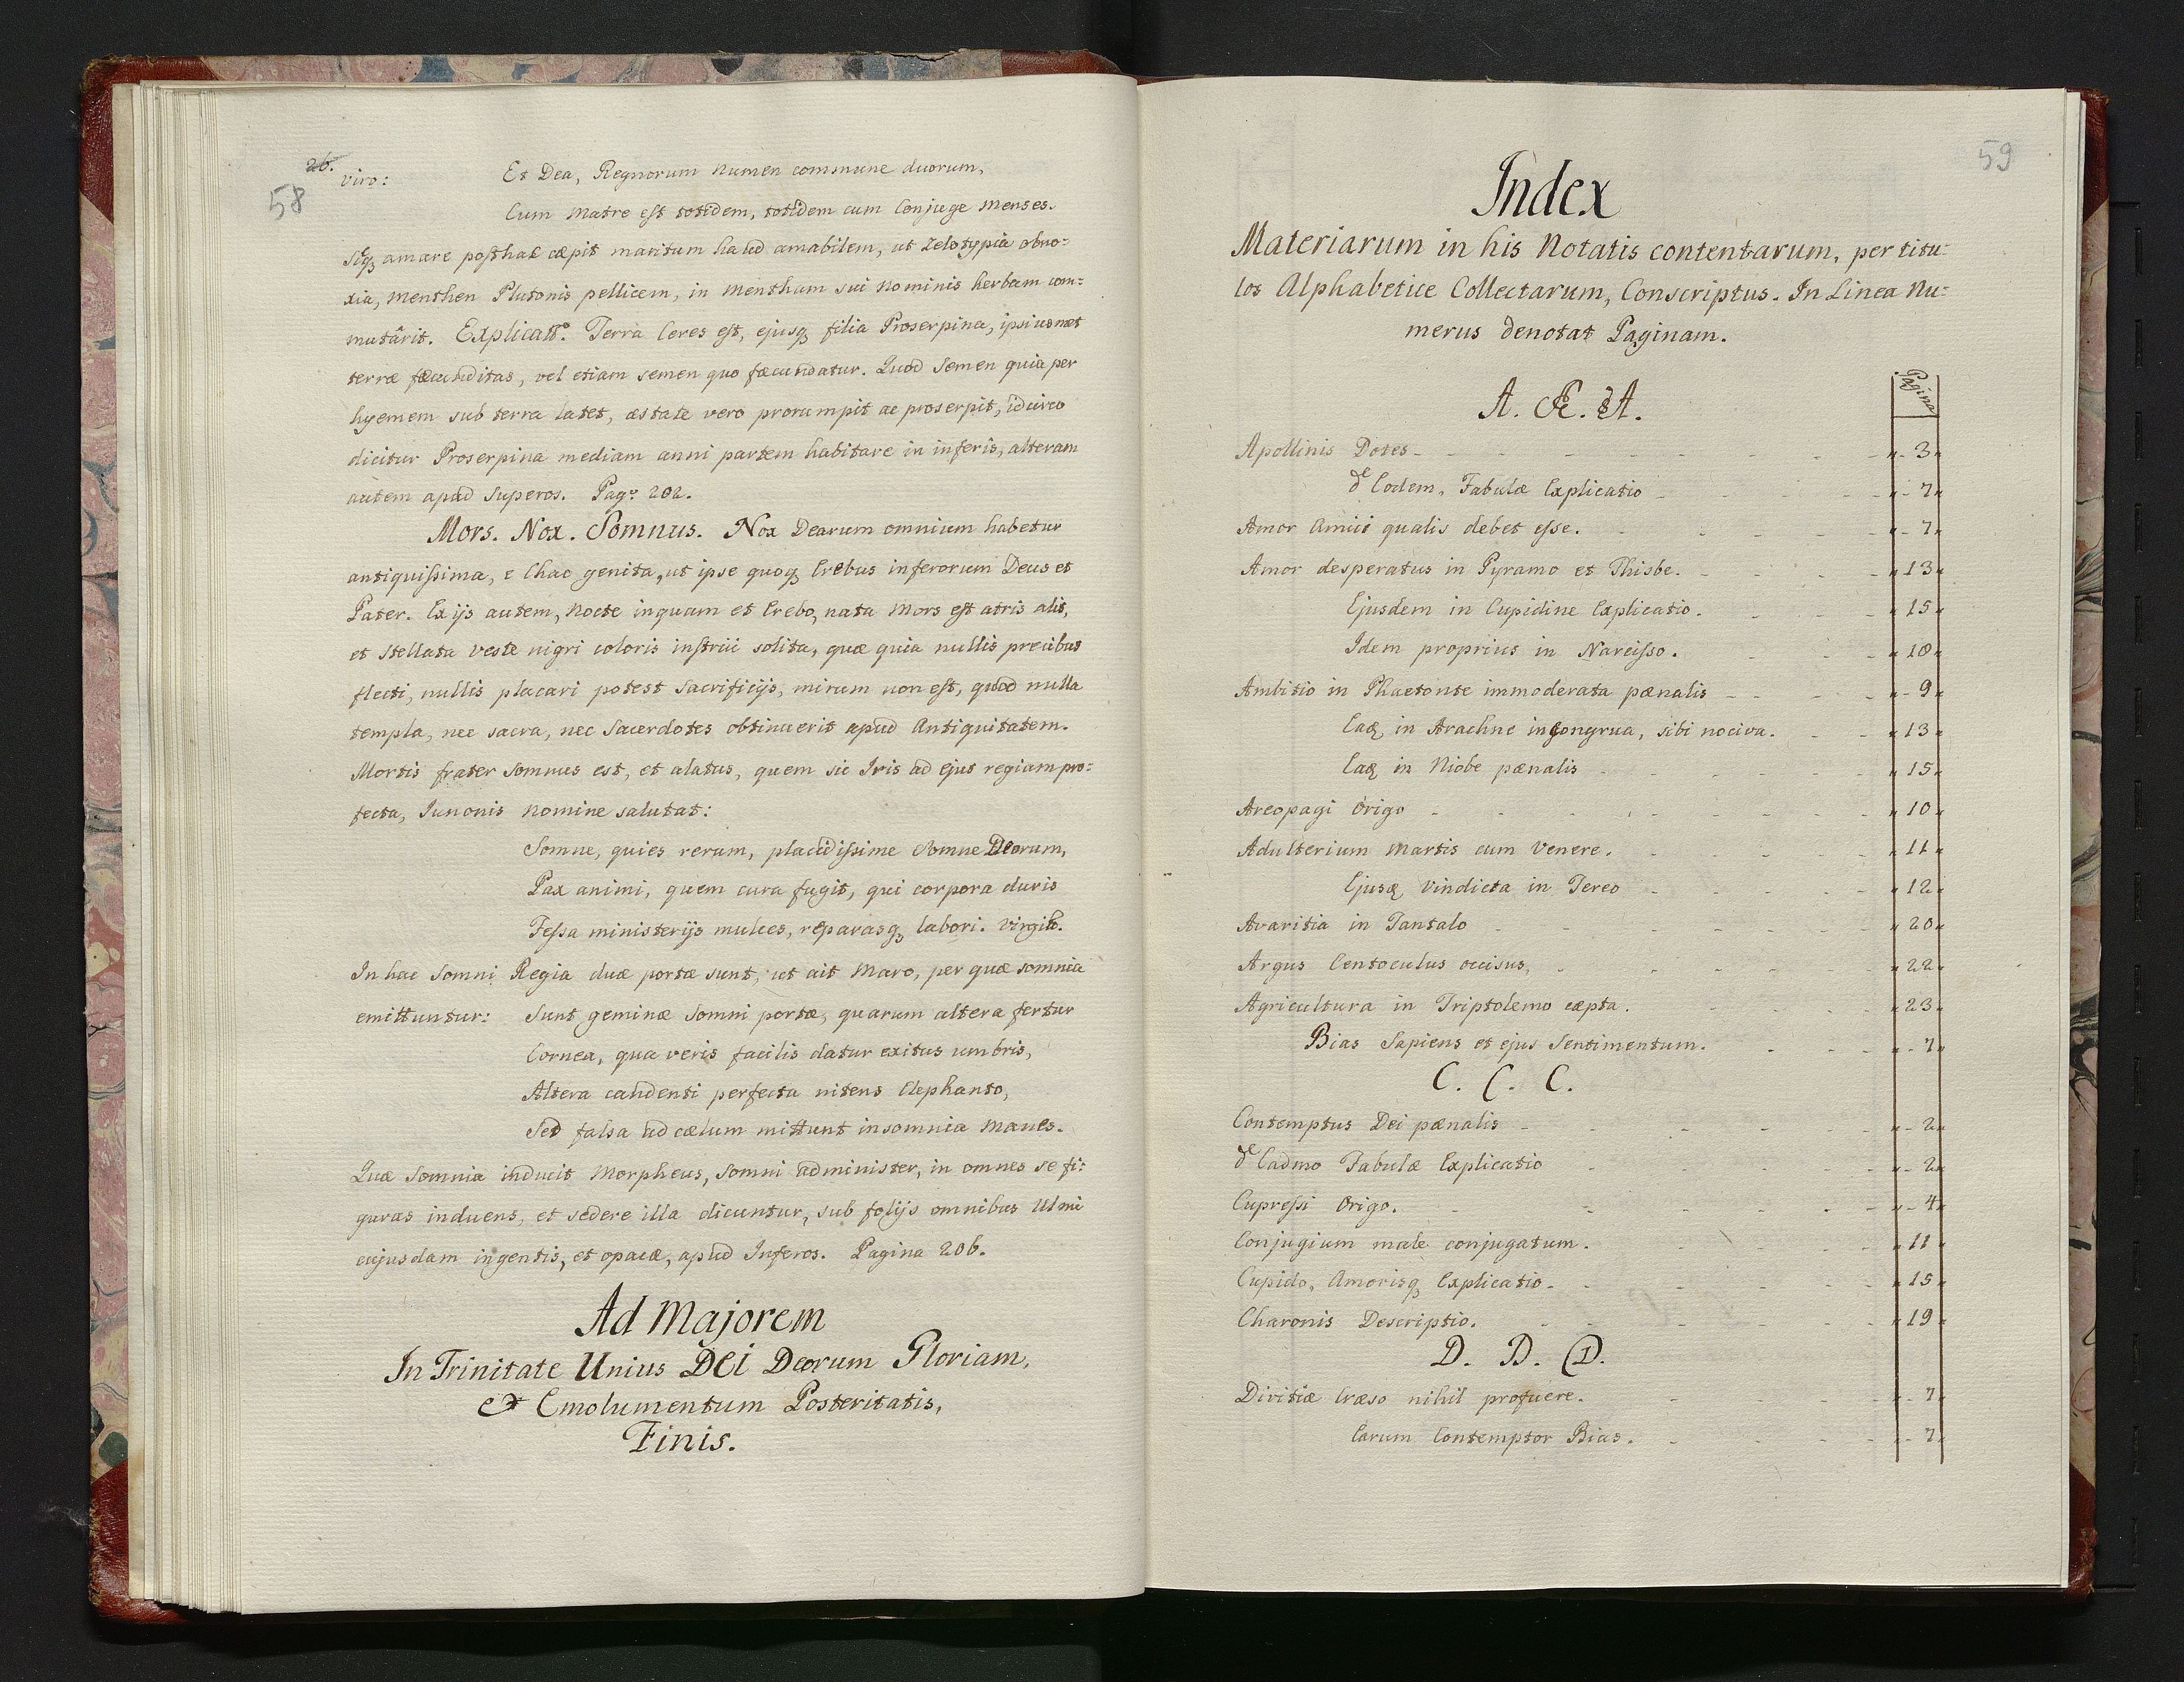 26.
58
viro: Et Dea, Regnorum numen commune duorum,
Cum Matre est totidem, totidem cum Conjuge Menses.
Sicq amare posthac cæpit maritum haud amabilem, ut Zelotypia obno=
xia, Menthen Plutonis pellicem, in Mentham sui nominis herbam com=
mutârit. Explicatº. Terra Ceres est, ejusq filia Proserpina, ipsiusmet
terræ fæcunditas, vel etiam semen quo fæcundatur. Quod Semen quia per
hyemem sub terra latet, æstate vero prorumpit ac proserpit, idcirco
dicitur Proserpina mediam anni partem habitare in inferis, alteram
autem apud Superos. Pag: 202.
Mors. Nox. Somnus. Nox Dearum omnium habetur
antiquissima, e Chao genita, ut ipse quoq Erebus inferorum Deus et
Pater. Ex ijs autem, Nocte inquam et Erebo, nata Mors est atris alis,
et Stellata veste nigri coloris instrui solita, quæ quia nullis precibus
flecti, nullis placari potest Sacrificijs, mirum non est, quod nulla
templa, nec sacra, nec Sacerdotes obtinuerit apud Antiquitatem.
Mortis frater Somnus est, et alatus, quem sic Iris ad ejus regiam pro=
fecta, Iunonis Nomine salutat:
Somne, quies rerum, placidissime Somne Deorum,
Pax animi, quem cura fugit, qui corpora duris
Fessa ministerijs mulces, reparasq labori. Virgil.
In hac Somni Regia duæ portæ sunt, ut ait Maro, per quæ somnia
emittuntur: Sunt geminæ Somni portæ, quarum altera fertur
Cornea, qua veris facilis datur exitus umbris,
Altera candenti perfecta nitens Elephanto,
Sed falsa ad cælum mittunt insomnia Manes.
Quæ Somnia inducit Morpheus, Somni administer, in omnes se fi=
guras induens, et sedere illa dicuntur, sub folijs omnibus Ulmi
cujusdam ingentis, et opacæ, apud Inferos. Pagina 206.
Ad Majorem
In Trinitate Unius DEI Deorum Gloriam,
et Emolumentum Posteritatis,
Finis.
59
Index
Materiarum in his Notatis contentarum, per titu=
los Alphabetice Collectarum, Conscriptus. In Linea Nu=
merus denotat Paginam.
Pagina
A. Æ. A.
Apollinis Dotes 3
de Eodem, Fabulæ Explicatio 7
Amor Amici qualis debet esse. 7
Amor desperatus in Pyramo et Thisbe. 13
Ejusdem in Cupidine Explicatio. 15
Idem proprius in Narcisso. 18
Ambitio in Phaetonte immoderata pænalis 9
Eaq in Arachne incongrua, sibi nociva. 13
Eaq in Niobe pænalis 15
Areopagi Origo 10
Adulterium Martis cum Venere. 11
Ejusq Vindicta in Tereo 12
Avaritia in Tantalo 20
Argus Centoculus occisus, 22
Agricultura in Triptolemo cæpta. 23
Bias Sapiens et ejus Sentimentum. 7
C. C. C.
Contemptus Dei pænalis 2
de Cadmo Fabulæ Explicatio 2
Cupressi Origo. 4
Conjugium male conjugatum. 11
Cupido, Amorisq Explicatio 15
Charonis Descriptio. 19
D. D. D.
Divitiæ Cræso nihil profuere. 7
Earum Contemptor Bias. 7